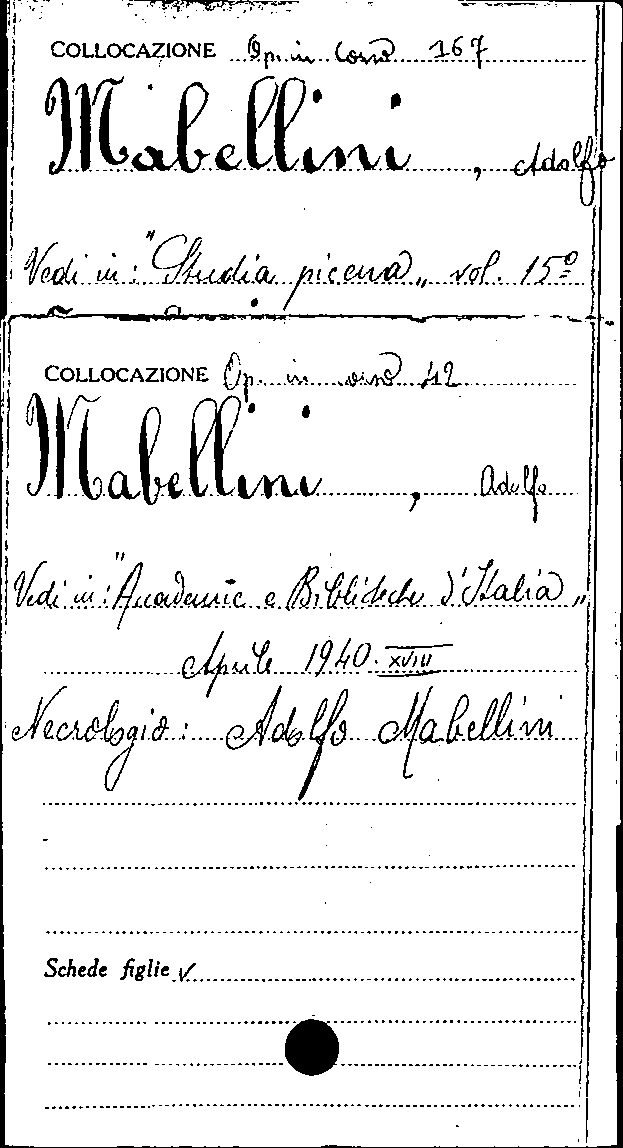 COLLOCAZIONE Op. in corso 167
Mabellini, Adolfo
Vedi in: "Studia picena„ vol. 15º
COLLOCAZIONE Op. in corso 42
Mabellini, Adolfo
Vedi in: "Accademie e Biblioteche d'Italia„
Aprile 1940. XVIII
Necrologio: Adolfo Mabellini
Schede figlie ✓